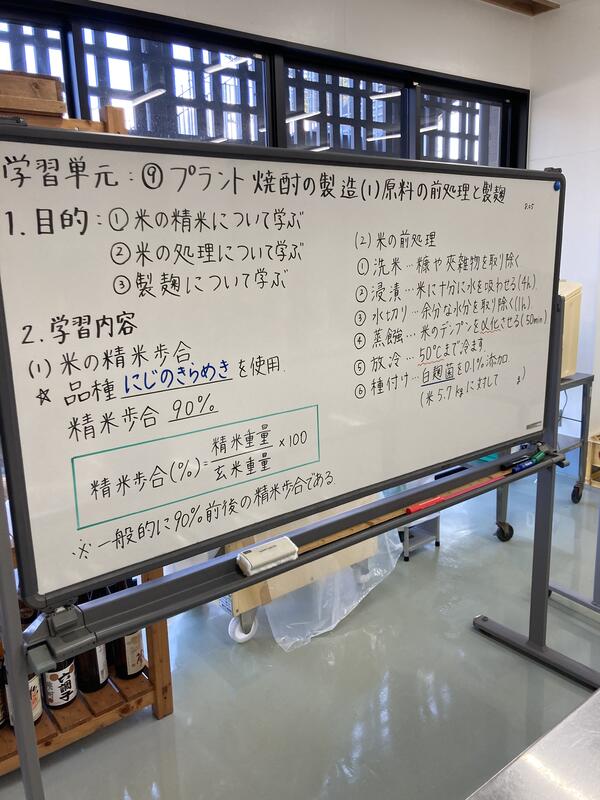 学習単元:⑨プラント焼酎の製造(1)原料の前処理と製麹
1.目的:①米の精米について学ぶ
②米の処理について学ぶ
③製麹について学ぶ
2.学習内容
(1)米の精米歩合
☆品種にじのきらめきを使用
精米歩合 90%
精米歩合(%)=精米重量/玄米重量×100
※一般的に90%前後の精米歩合である
(2)米の前処理
①洗米…糠や夾雑物を取り除く
②浸漬…米に十分に水を吸わせる(4h)
③水切り…余分な水分を取り除く(1h)
④蒸鏹…米のデンプンをα化させる(50min)
⑤放冷…50℃まで冷ます
⑥種付け…白麹菌を0.1%添加
(米5.7kgに対して g)
六調子